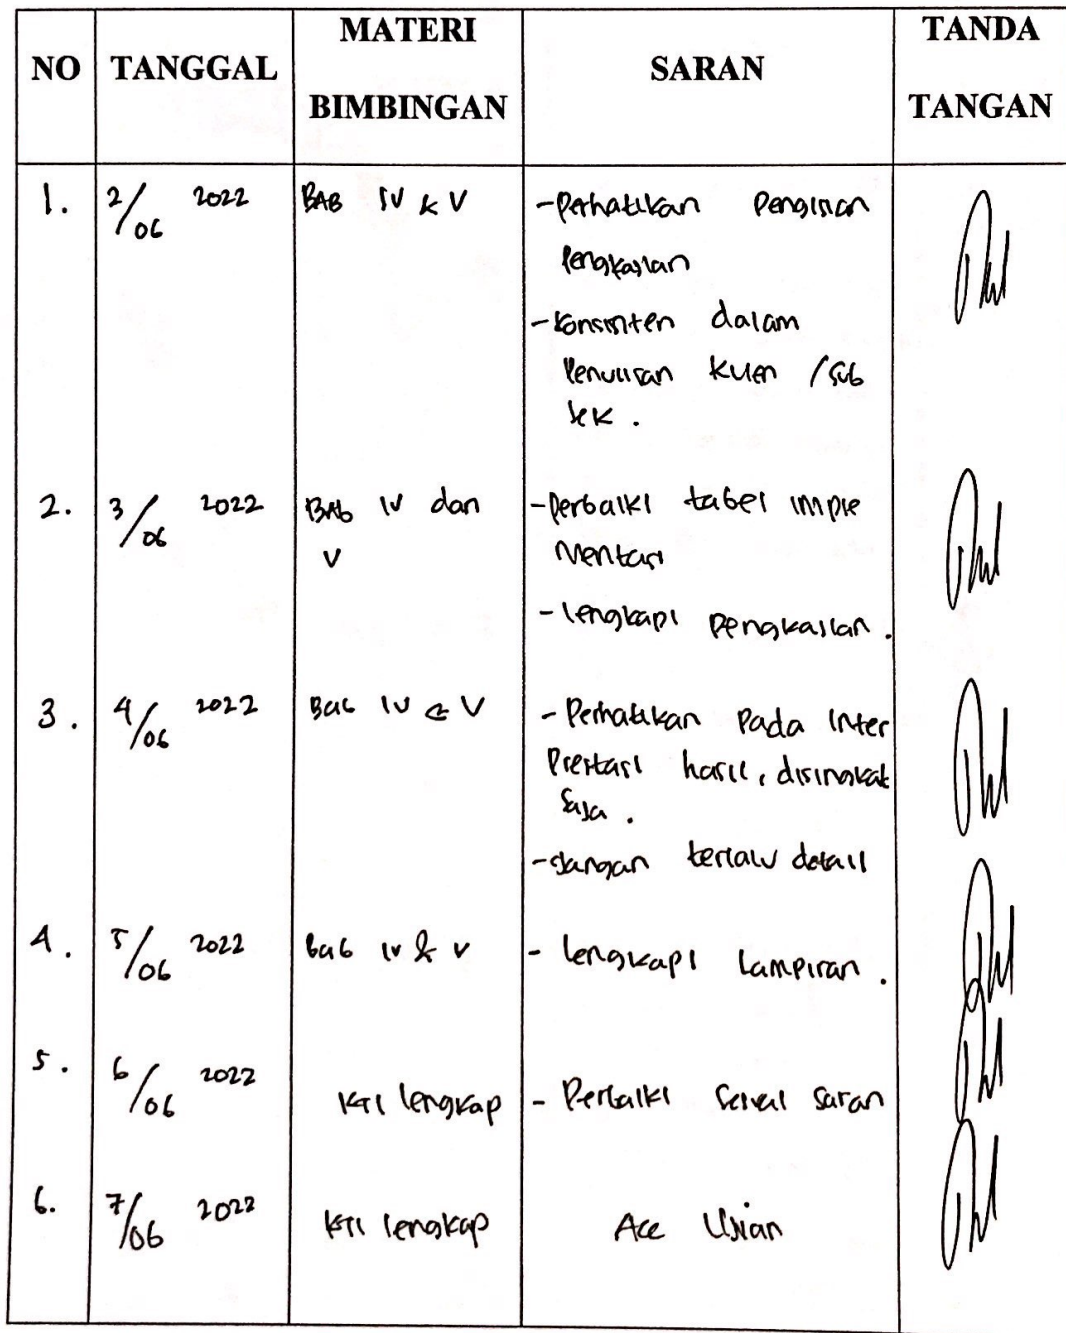 NO TANGGAL MATERI BIMBINGAN SARAN TANDA TANGAN
1. 2/06 2022 BAB IV & V -Perhatikan Pengisian
Pengkajian
-Konsisten dalam
Penulisan Klien /Sub
Jek.
2. 3/06 2022 BAb IV dan -Perbaiki tabel imple
V mentasi
-lengkapi pengkajian.
3. 4/06 2022 Bab IV & V -Perhatikan Pada Inter
Prestasi hasil, disingkat
Saja.
-Jangan terlalu detail
4. 5/06 2022 Bab IV & V - lengkapi Lampiran.
5. 6/06 2022 KTI lengkap - Perbaiki Sesuai Saran
6. 7/06 2022 KTI lengkap Acc Ujian